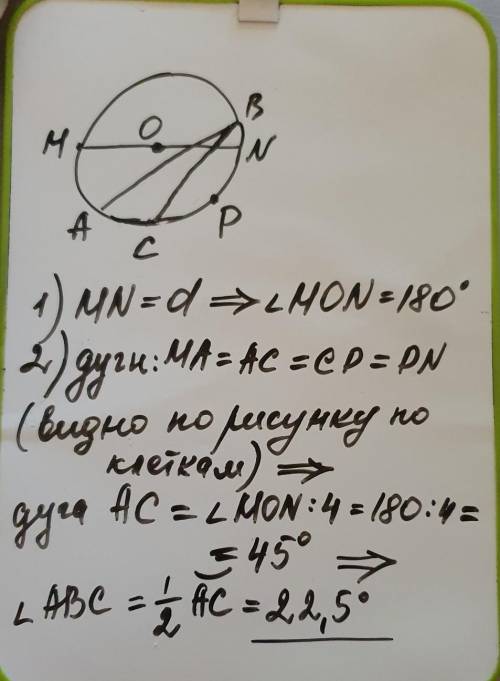 B
O
M
N
A
P
C
1) MN = d ⇒ ∠MON = 180°
2) дуги: MA = AC = CP = PN
(видно по рисунку по
клеткам) ⇒
дуга AC = ∠MON : 4 = 180 : 4 =
= 45° ⇒
∠ABC = 1/2 AC = 22,5°